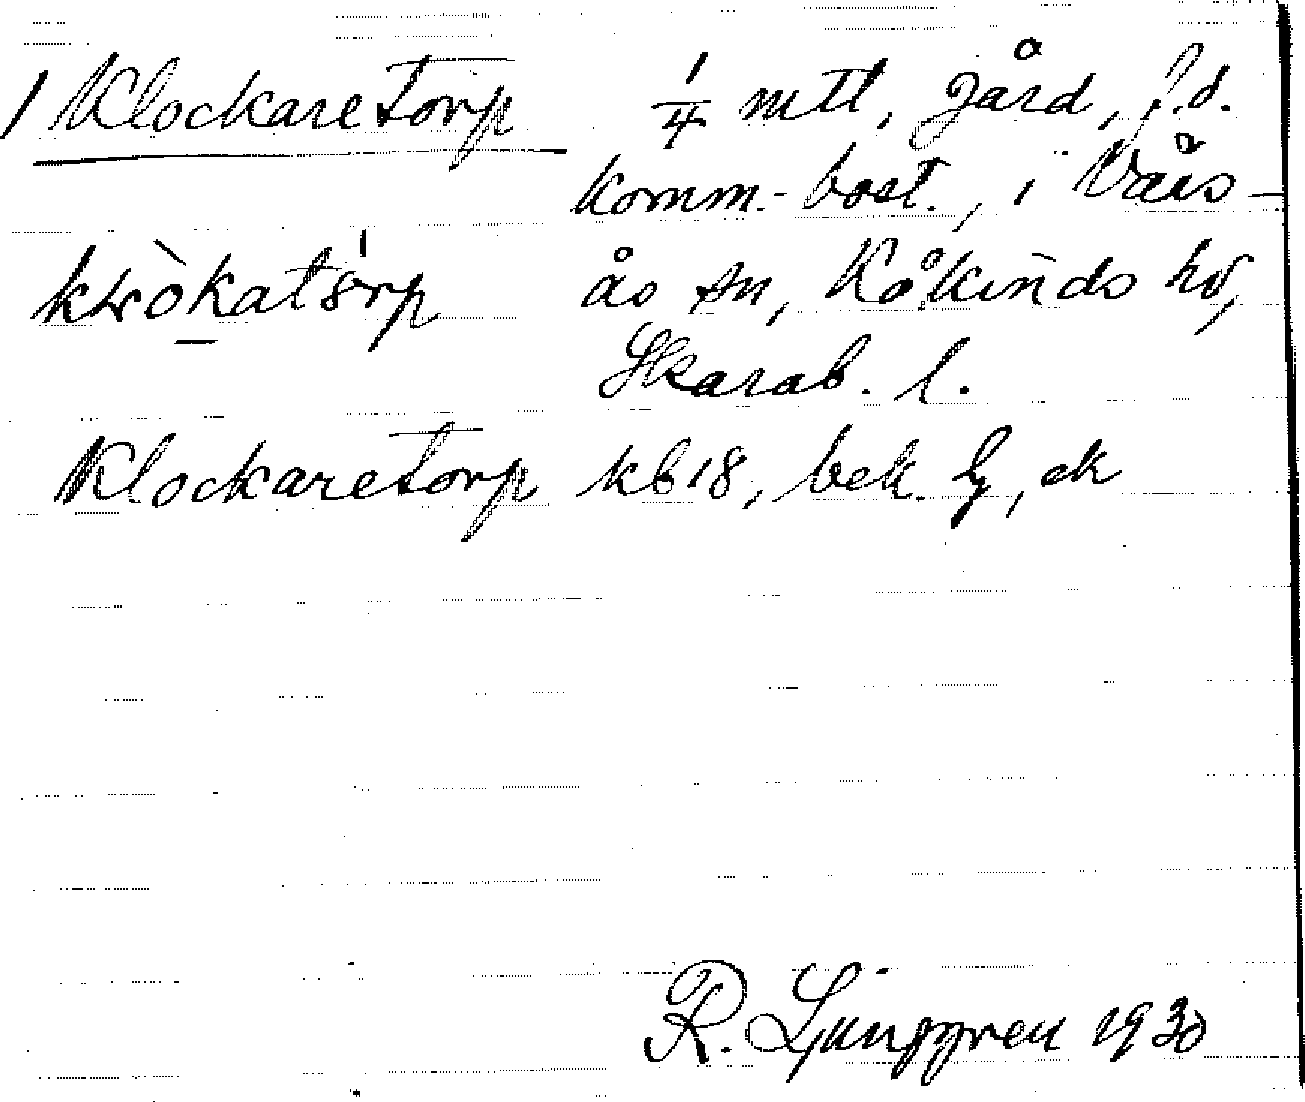 1 Klockaretorp 1/4 mtl, gård, f.d.
komm.-bost., i Värs-
ås sn, Kåkinds hd,
Skarab. l.
Klockaretorp kb 18, bek. Lj, ek
R. Ljunggren 1930